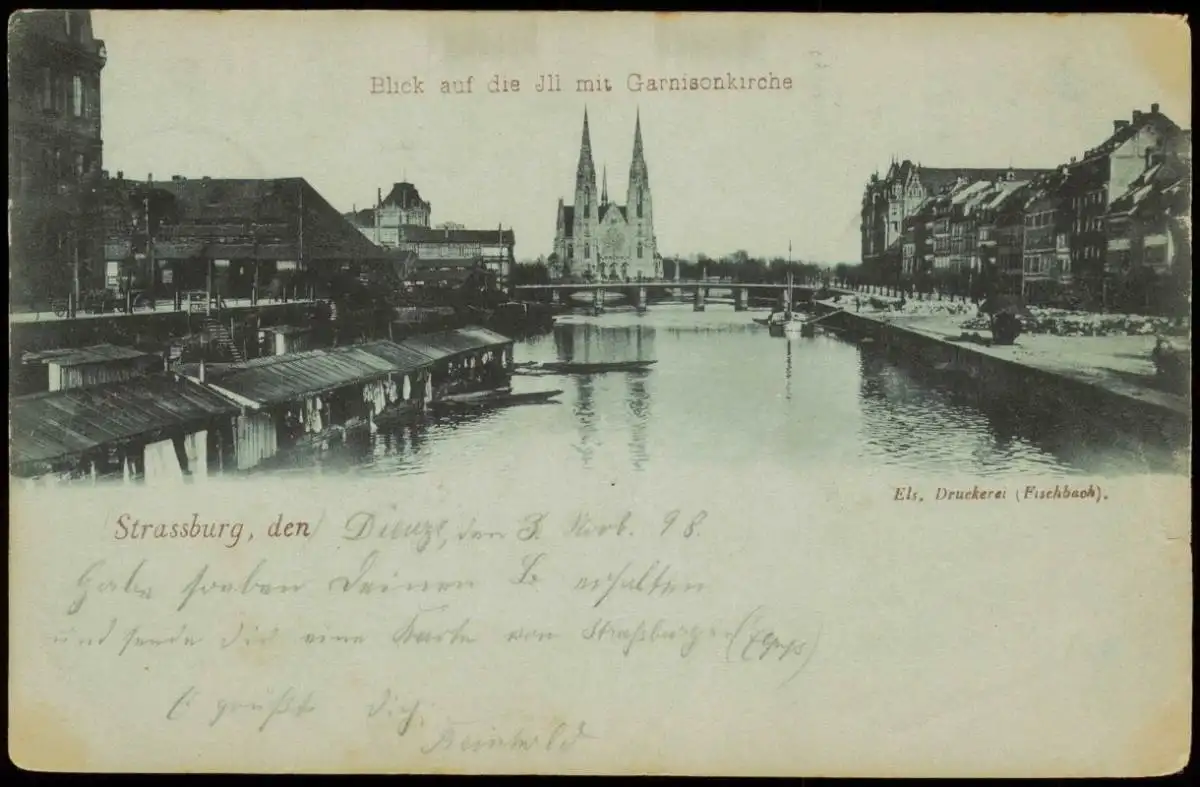 Blick auf die Jll mit Garnisonkirche
Els. Druckerei (Fischbach).
Strassburg, den Dieuze, den 3. Nov. 98.
Habe soeben Deinen B. erhalten
und sende Dir eine Karte von Straßburg
grüßt Dich